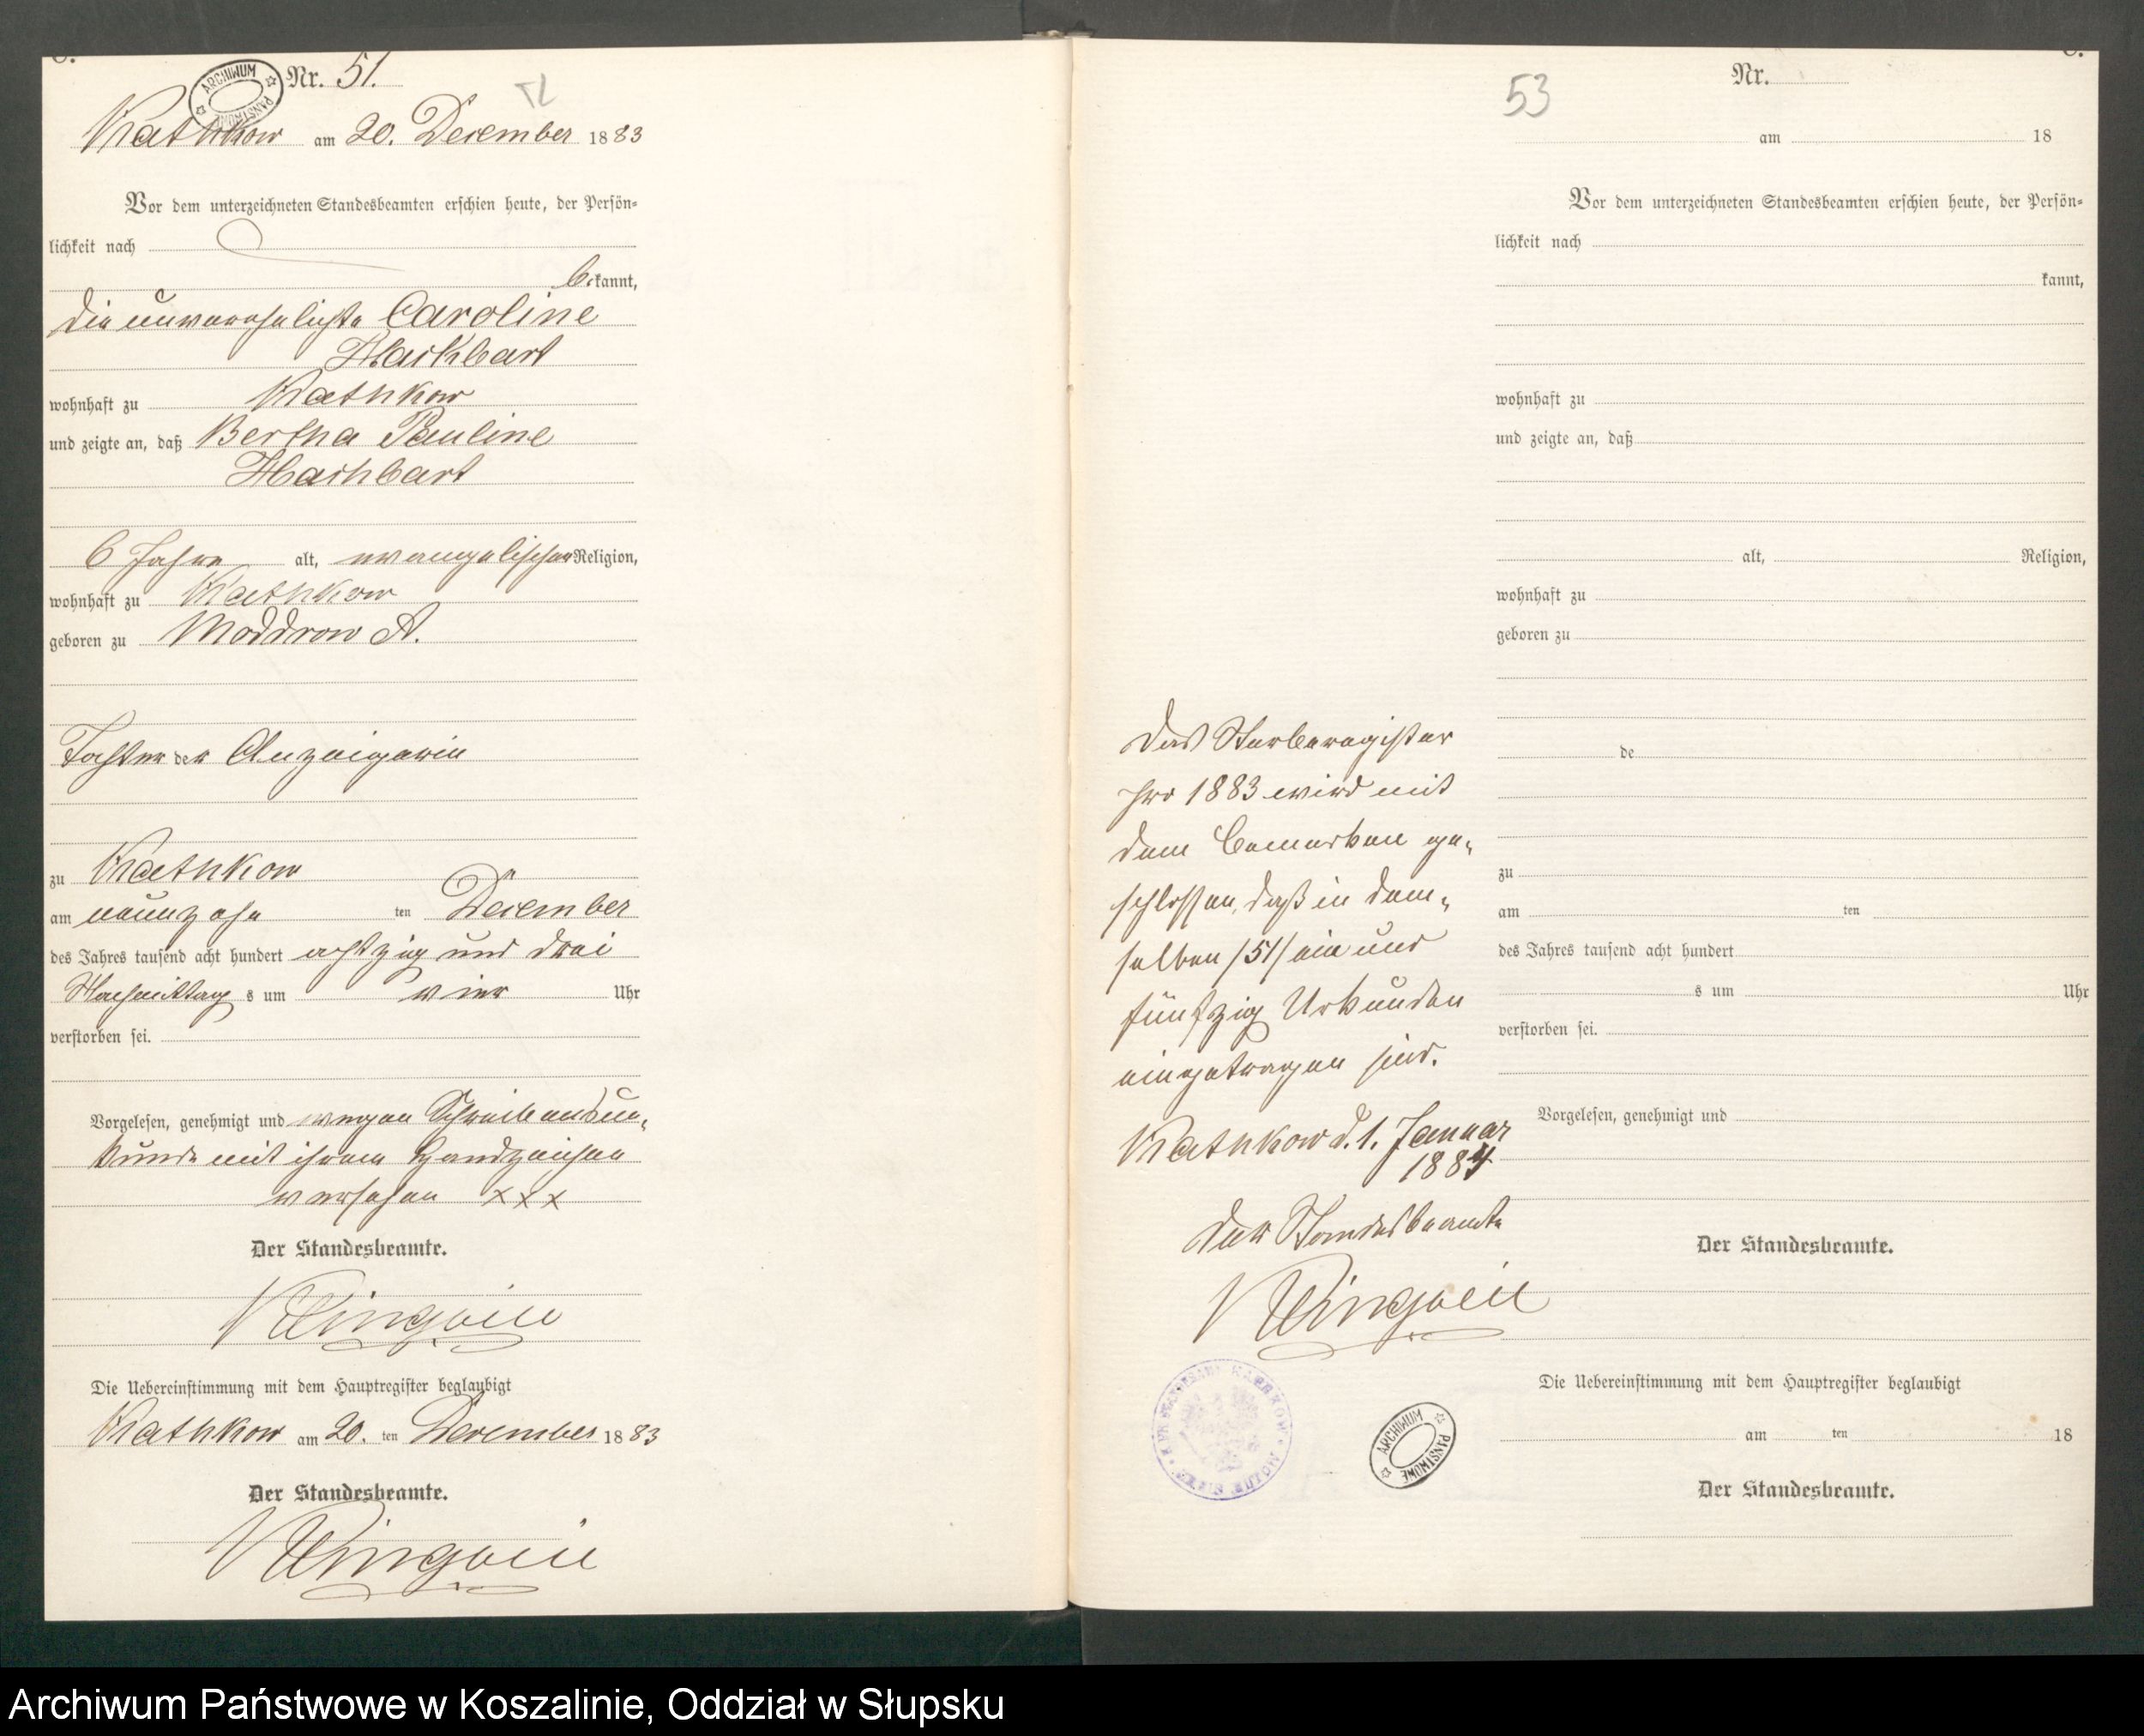 C.
Nr. 51.
ARCHIWUM PAŃSTWOWE
52
Kathkow am 20. December 1883
Vor dem unterzeichneten Standesbeamten erschien heute, der Persön-
lichkeit nach
bekannt,
die unverehelichte Caroline
Hackbart
wohnhaft zu Kathkow
und zeigte an, daß Bertha Pauline
Hackbart
6 Jahre alt, evangelischer Religion,
wohnhaft zu Kathkow
geboren zu Moddrow A.
Tochter der Anzeigerin
zu Kathkow
am neunzehn ten December
des Jahres tausend acht hundert achtzig und drei
Nachmittags um vier Uhr
verstorben sei.
Vorgelesen, genehmigt und wegen Schreibensun-
kunde mit ihrem Handzeichen
versehen xxx
Der Standesbeamte.
Die Uebereinstimmung mit dem Hauptregister beglaubigt
Kathkow am 20. ten December 1883
Der Standesbeamte.
C.
53
Nr.
am 18
Vor dem unterzeichneten Standesbeamten erschien heute, der Persön-
lichkeit nach
kannt,
wohnhaft zu
und zeigte an, daß
alt, Religion,
wohnhaft zu
geboren zu
de
zu
am ten
des Jahres tausend acht hundert
s um Uhr
verstorben sei.
Vorgelesen, genehmigt und
Der Standesbeamte.
Die Uebereinstimmung mit dem Hauptregister beglaubigt
am ten 18
Der Standesbeamte.
Das Sterberegister
pro 1883 wird mit
dem Bemerken ge-
schlossen, daß in dem-
selben /51/ ein und
fünfzig Urkunden
eingetragen sind.
Kathkow d. 1. Januar
1884
Der Standesbeamte
ARCHIWUM PAŃSTWOWE
Archiwum Państwowe w Koszalinie, Oddział w Słupsku